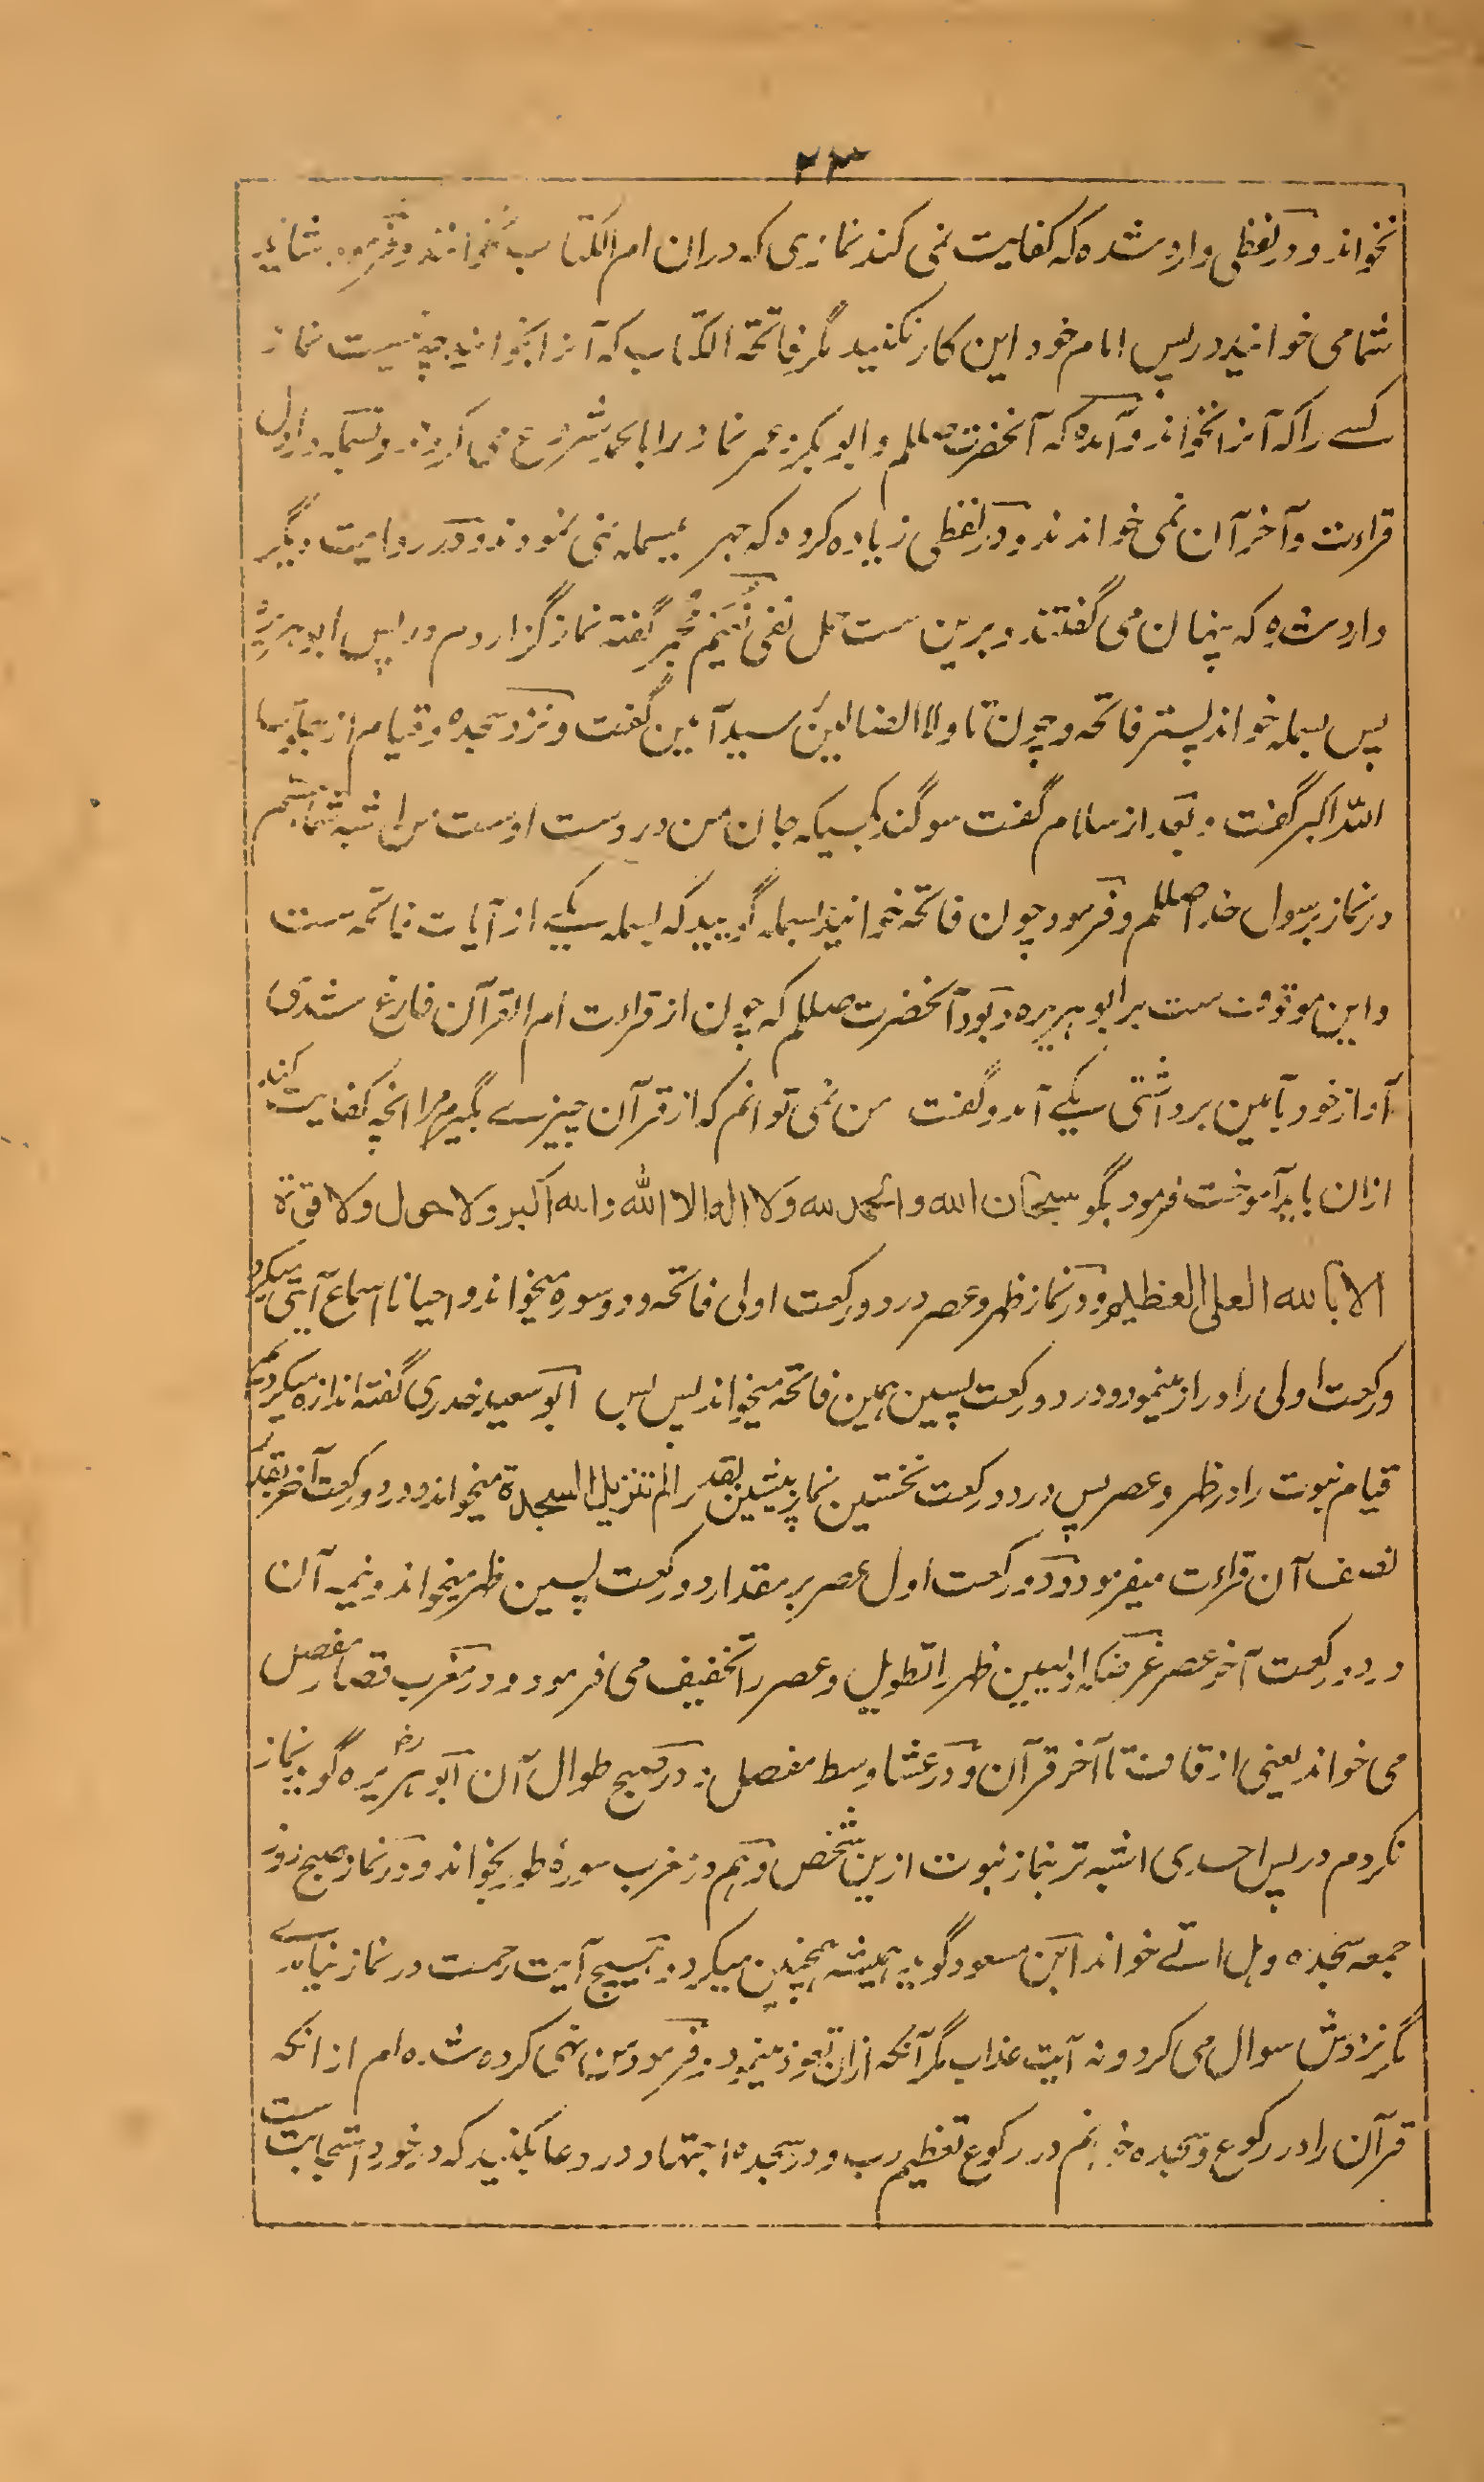 ۲۳
نخواند و در لفظی وارد شده که کفایت نمی کند نمازی که دران ام الکتاب نخوانند و فرمود شاید
شما می خوانید در پس امام خود این کار نکنید مگر فاتحة الکتاب که آنرا بخوانید چه نیست نماز
کسے را که آنرا نخواند و آمده که آنحضرت صللم و ابو بکر و عمر نماز را با لحمد شروع می کردند و بسمله در اول
قراءت و آخر آن نمی خواندند و در لفظی زیاده کرده که جهر ببسمله نمی نمودند و در روایت دیگر
وارد شده که پنهان می گفتند و برین ست حمل نفی نعیم مجمر گفته نماز گزاردم در پس ابو هریره
پس بسمله خواند پستر فاتحه و چون تا ولا الضالین رسید آمین گفت و نزد سجده و قیام از جلوس
الله اکبر گفت و بعد از سلام گفت سوگند بکسیکه جان من در دست اوست من اشبه شما هستم
در نماز برسول خدا صللم و فرمود چون فاتحه خوانید بسمله گویید که بسمله یکے از آیات فاتحه ست
و این موقوف ست بر ابو هریره و بود آنحضرت صللم که چون از قراءت ام القرآن فارغ شدی
آواز خود بآمین برداشتی یکے آمد و گفت من نمی توانم که از قرآن چیزے بگیرم مرا انچه کفایت کند
ازان باید آموخت فرمود بگو سبحان الله والحمد لله ولا اله الا الله والله اکبر ولا حول ولا قوة
الا بالله العلی العظیم و در نماز ظهر و عصر در دو رکعت اولی فاتحه و دو سوره میخواند و احیانا اسماع آیتی میکرد
و رکعت اولی را دراز مینمود و در دو رکعت پسین همین فاتحه میخواند پس بس ابو سعید خدری گفته اندازه میکردیم
قیام نبوت را در ظهر و عصر پس در دو رکعت نخستین نماز پیشین بقدر الم تنزیل السجدة میخواند و در دو رکعت آخر بقدر
نصف آن قراءت میفرمود و در دو رکعت اول عصر بر مقدار دو رکعت پسین ظهر میخواند و نیمه آن
در دو رکعت آخر عصر غرضکه اولیین ظهر را تطویل و عصر را تخفیف می فرمود و در مغرب قصار مفصل
می خواند یعنی از قاف تا آخر قرآن و در عشا وسط مفصل و در صبح طوال آن ابو هریره رض گوید نماز
نکردم در پس احدی اشبه تر بنماز نبوت ازین شخص و هم در مغرب سورۀ طور بخواند و در نماز صبح روز
جمعه سجده و هل اتے خواند ابن مسعود گوید همیشه همچنین میکرد و هیچ آیت رحمت در نماز نیامدے
مگر نزدش سوال می کرد و نه آیت عذاب مگر آنکه ازان تعوذ مینمود و فرمود من نهی کرده شده ام از انکه
قرآن را در رکوع و سجده خوانم در رکوع تعظیم رب و در سجده اجتهاد در دعا بکنید که در خور استجابت ست